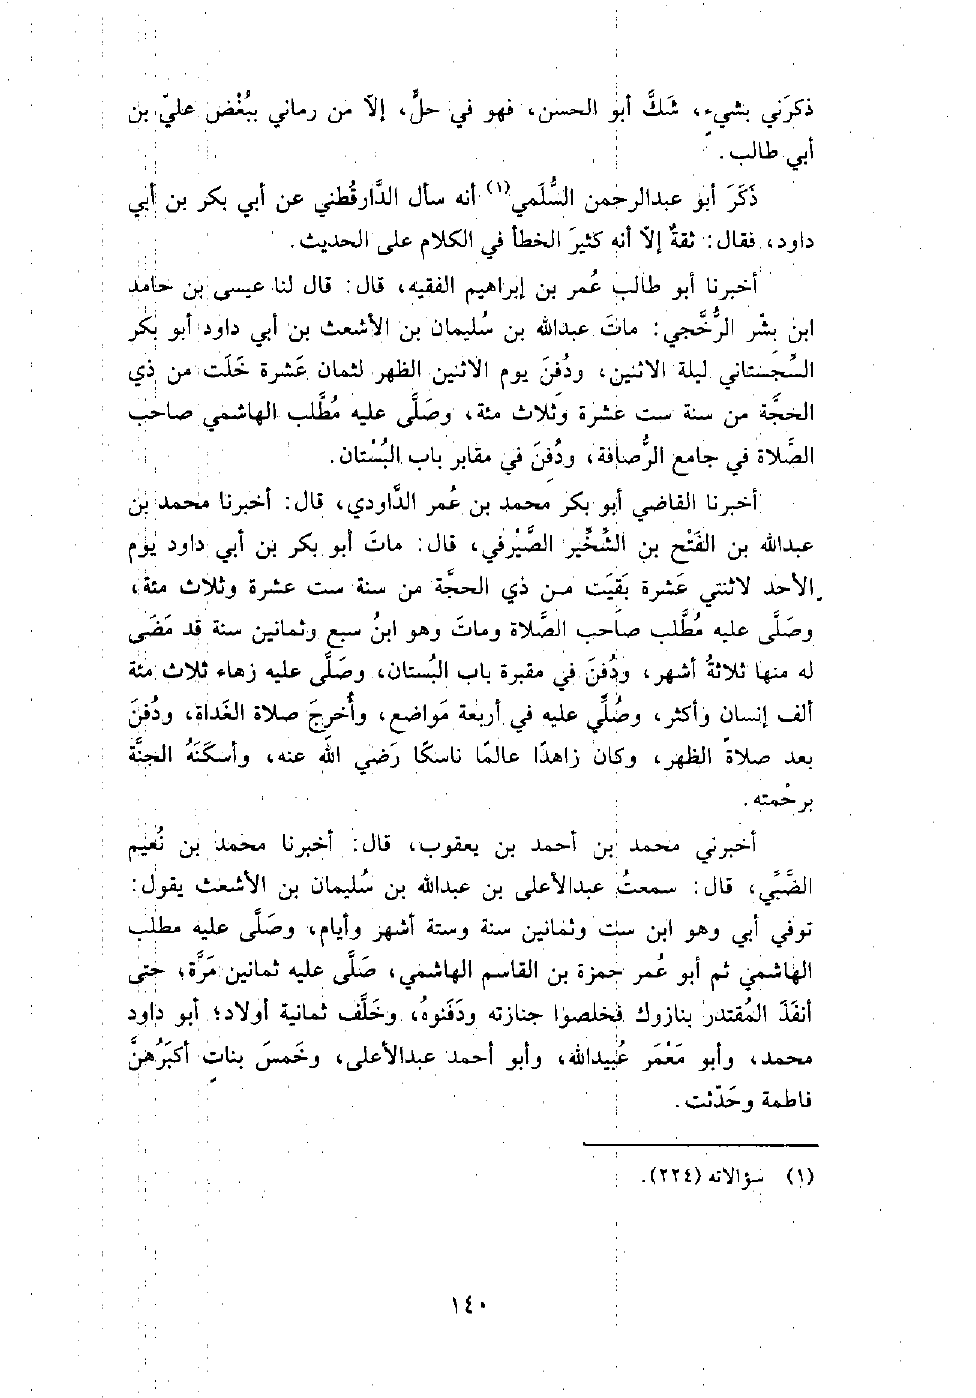 ذكرَني بشيء، شَكَّ أبو الحسن، فهو في حلٍّ، إلاّ من رماني ببُغْض عليّ بن
أبي طالب.
ذَكَرَ أبو عبدالرحمن السُّلَمي(١) أنه سأل الدَّارقُطني عن أبي بكر بن أبي
داود، فقال: ثقةٌ إلاّ أنه كثيرَ الخطأ في الكلام على الحديث.
أخبرنا أبو طالب عُمر بن إبراهيم الفقيه، قال: قال لنا عيسى بن حامد
ابن بشْر الرُّخَّجي: ماتَ عبدالله بن سُليمان بن الأشعث بن أبي داود أبو بكر
السِّجستاني ليلة الاثنين، ودُفنَ يوم الاثنين الظهر لثمان عَشرة خَلَت من ذي
الحجَّة من سنة ست عشرة وثلاث مئة، وصَلَّى عليه مُطَّلب الهاشمي صاحب
الصَّلاة في جامع الرُّصافة، ودُفنَ في مقابر باب البُسْتان.
أخبرنا القاضي أبو بكر محمد بن عُمر الدَّاودي، قال: أخبرنا محمد بن
عبدالله بن الفَتْح بن الشِّخِّير الصَّيْرفي، قال: ماتَ أبو بكر بن أبي داود يوم
الأحد لاثنتي عَشرة بَقيَت من ذي الحجَّة من سنة ست عشرة وثلاث مئة،
وصَلَّى عليه مُطَّلب صاحب الصَّلاة وماتَ وهو ابنُ سبع وثمانين سنة قد مَضَى
له منها ثلاثةُ أشهر، ودُفنَ في مقبرة باب البُستان، وصَلَّى عليه زهاء ثلاث مئة
ألف إنسان وأكثر، وصُلِّي عليه في أربعة مَواضع، وأُخرجَ صلاة الغَداة، ودُفنَ
بعد صلاة الظهر، وكان زاهدًا عالمًا ناسكًا رَضي الله عنه، وأسكَنَهُ الجنَّة
برحْمته.
أخبرني محمد بن أحمد بن يعقوب، قال: أخبرنا محمد بن نُعيم
الضَّبِّي، قال: سمعتُ عبدالأعلى بن عبدالله بن سُليمان بن الأشعث يقول:
توفي أبي وهو ابن ست وثمانين سنة وستة أشهر وأيام، وصَلَّى عليه مطلب
الهاشمي ثم أبو عُمر حمزة بن القاسم الهاشمي، صَلَّى عليه ثمانين مَرَّة، حتى
أنفَذَ المُقتدر بنازوك فخلصوا جنازته ودَفَنوهُ، وخَلَّف ثمانية أولاد؛ أبو داود
محمد، وأبو مَعْمَر عُبيدالله، وأبو أحمد عبدالأعلى، وخَمسَ بنات أكبَرُهنَّ
فاطمة وحَدَّثت.
(١) سؤالاته (٢٢٤).
١٤٠